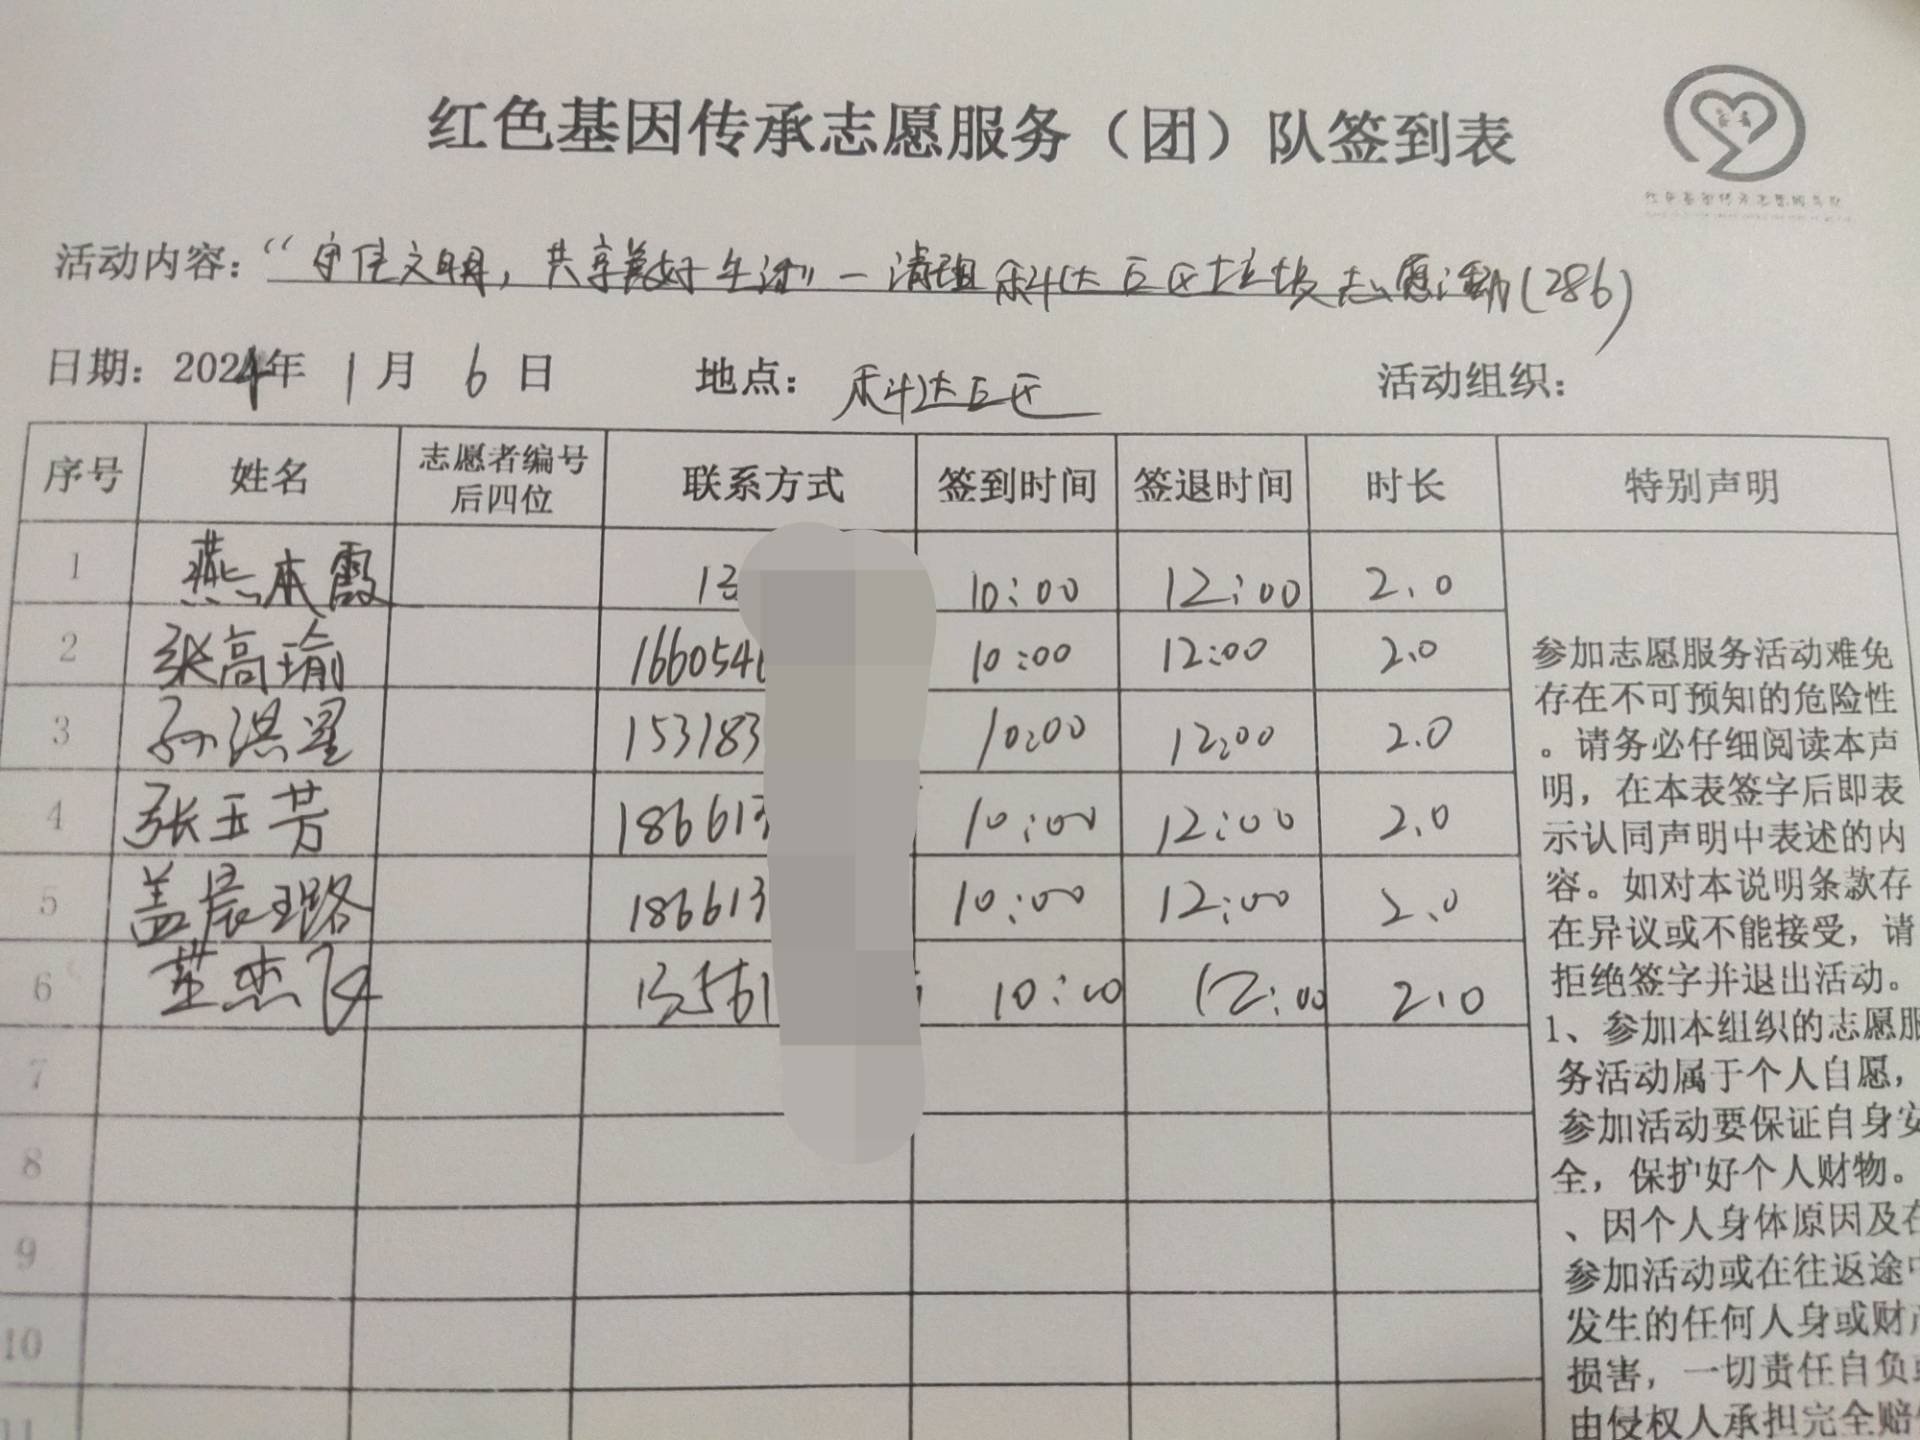 红色基因传承志愿服务（团）队签到表
活动内容：“守住文明，共享美好生活”—清理科达B区垃圾志愿活动(286)
日期：2024年 1月 6日 地点：科达B区 活动组织：
序号 姓名 志愿者编号后四位 联系方式 签到时间 签退时间 时长 特别声明
1 燕本霞 13 10:00 12:00 2.0
2 张高瑜 166054 10:00 12:00 2.0
3 孙淇星 153183 10:00 12:00 2.0
4 张玉芳 186613 10:00 12:00 2.0
5 盖晨璐 186613 10:00 12:00 2.0
6 董杰飞 13561 10:00 12:00 2.0
7
8
9
10
11
参加志愿服务活动难免
存在不可预知的危险性
。请务必仔细阅读本声
明，在本表签字后即表
示认同声明中表述的内
容。如对本说明条款存
在异议或不能接受，请
拒绝签字并退出活动。
1、参加本组织的志愿服
务活动属于个人自愿，
参加活动要保证自身安
全，保护好个人财物。
、因个人身体原因及在
参加活动或在往返途中
发生的任何人身或财产
损害，一切责任自负或
由侵权人承担完全赔